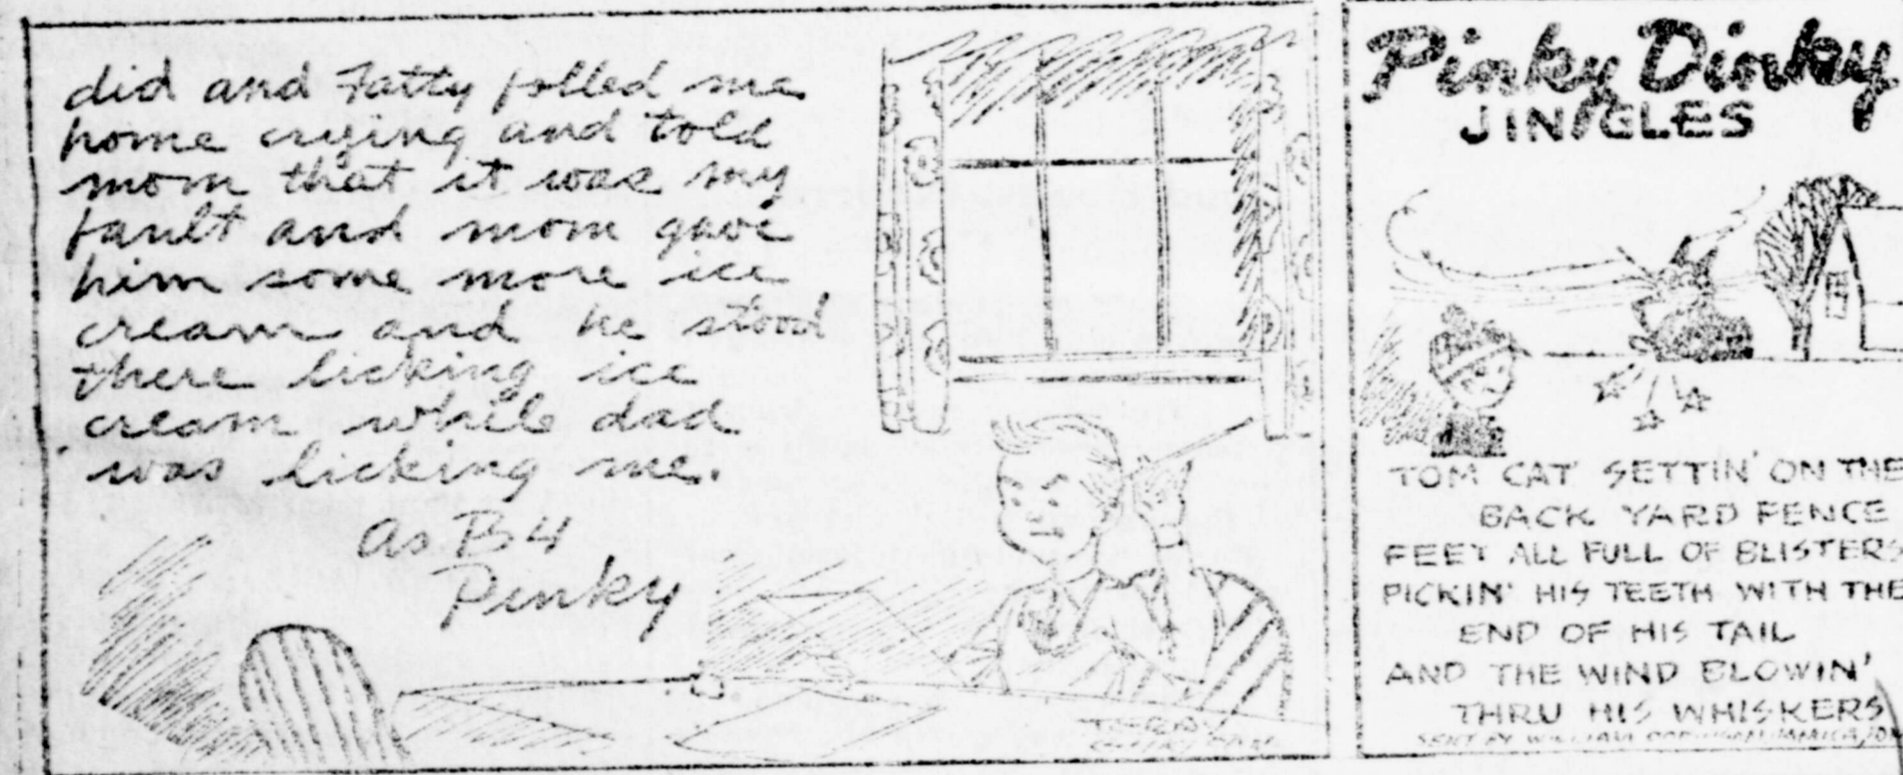 did and Fatty folled me
home crying and told
mom that it was my
fault and mom gave
him some more ice
cream and he stood
there licking ice
cream while dad
was licking me.
As B4
Pinky
Pinky Dinky
JINGLES
TOM CAT SETTIN' ON THE
BACK YARD FENCE
FEET ALL FULL OF BLISTERS
PICKIN' HIS TEETH WITH THE
END OF HIS TAIL
AND THE WIND BLOWIN'
THRU HIS WHISKERS
SENT BY WILLIAM